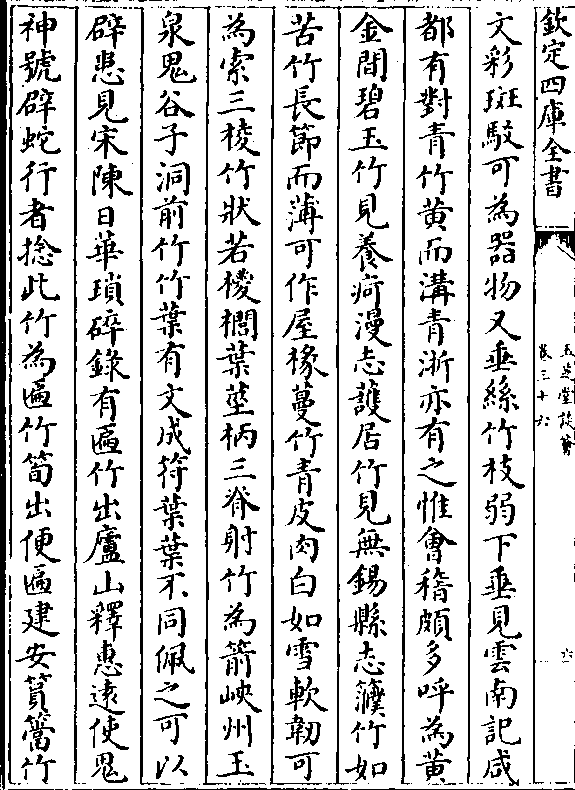 欽定四庫全書
文彩斑駁可為器物又垂絲竹枝弱下垂見雲南記咸
都有對青竹黄而溝青浙亦有之惟會稽頗多呼為黄
金間碧玉竹見養疴漫志䕶居竹見無錫縣志籏竹如
苦竹長節而薄可作屋椽蔓竹青皮肉白如雪軟韌可
為索三棱竹狀若椶櫚葉莖柄三脊射竹為箭峽州玉
泉鬼谷子洞前竹竹葉有文成符葉葉不同佩之可以
辟患見宋陳日華瑣碎錄有匾竹出廬山釋惠遠使鬼
神號辟蛇行者捻此竹為匾竹筍出便匾建安篔簹竹
卷三十六
六